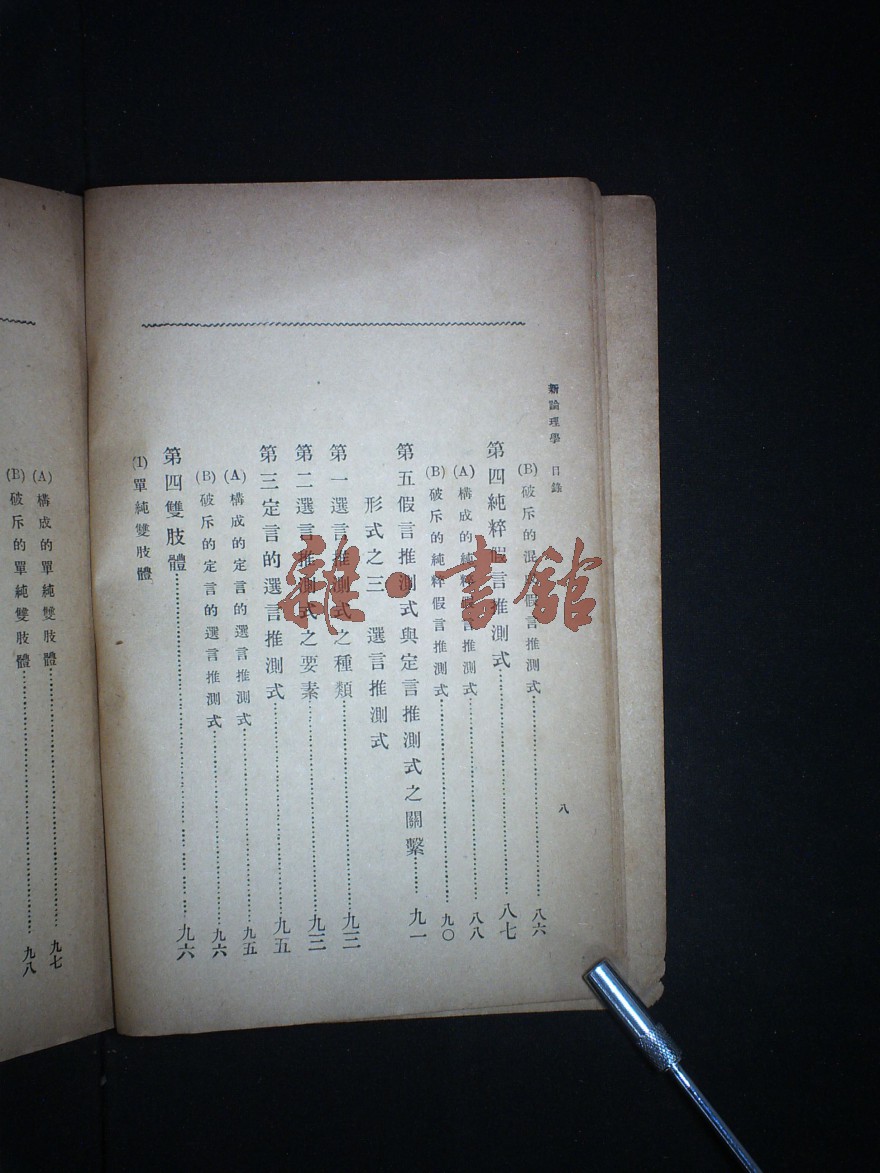 新論理學 目錄 八
(B)破斥的混 假言推測式……八六
第四純粹假言推測式……八七
(A)構成的純粹假言推測式……八八
(B)破斥的純粹假言推測式……九〇
第五假言推測式與定言推測式之關繫……九一
形式之三 選言推測式
第一選言推測式之種類……九三
第二選言推測式之要素……九三
第三定言的選言推測式……九五
(A)構成的定言的選言推測式……九五
(B)破斥的定言的選言推測式……九六
第四雙肢體……九六
(1)單純雙肢體
(A)構成的單純雙肢體……九七
(B)破斥的單純雙肢體……九八
雜·書館